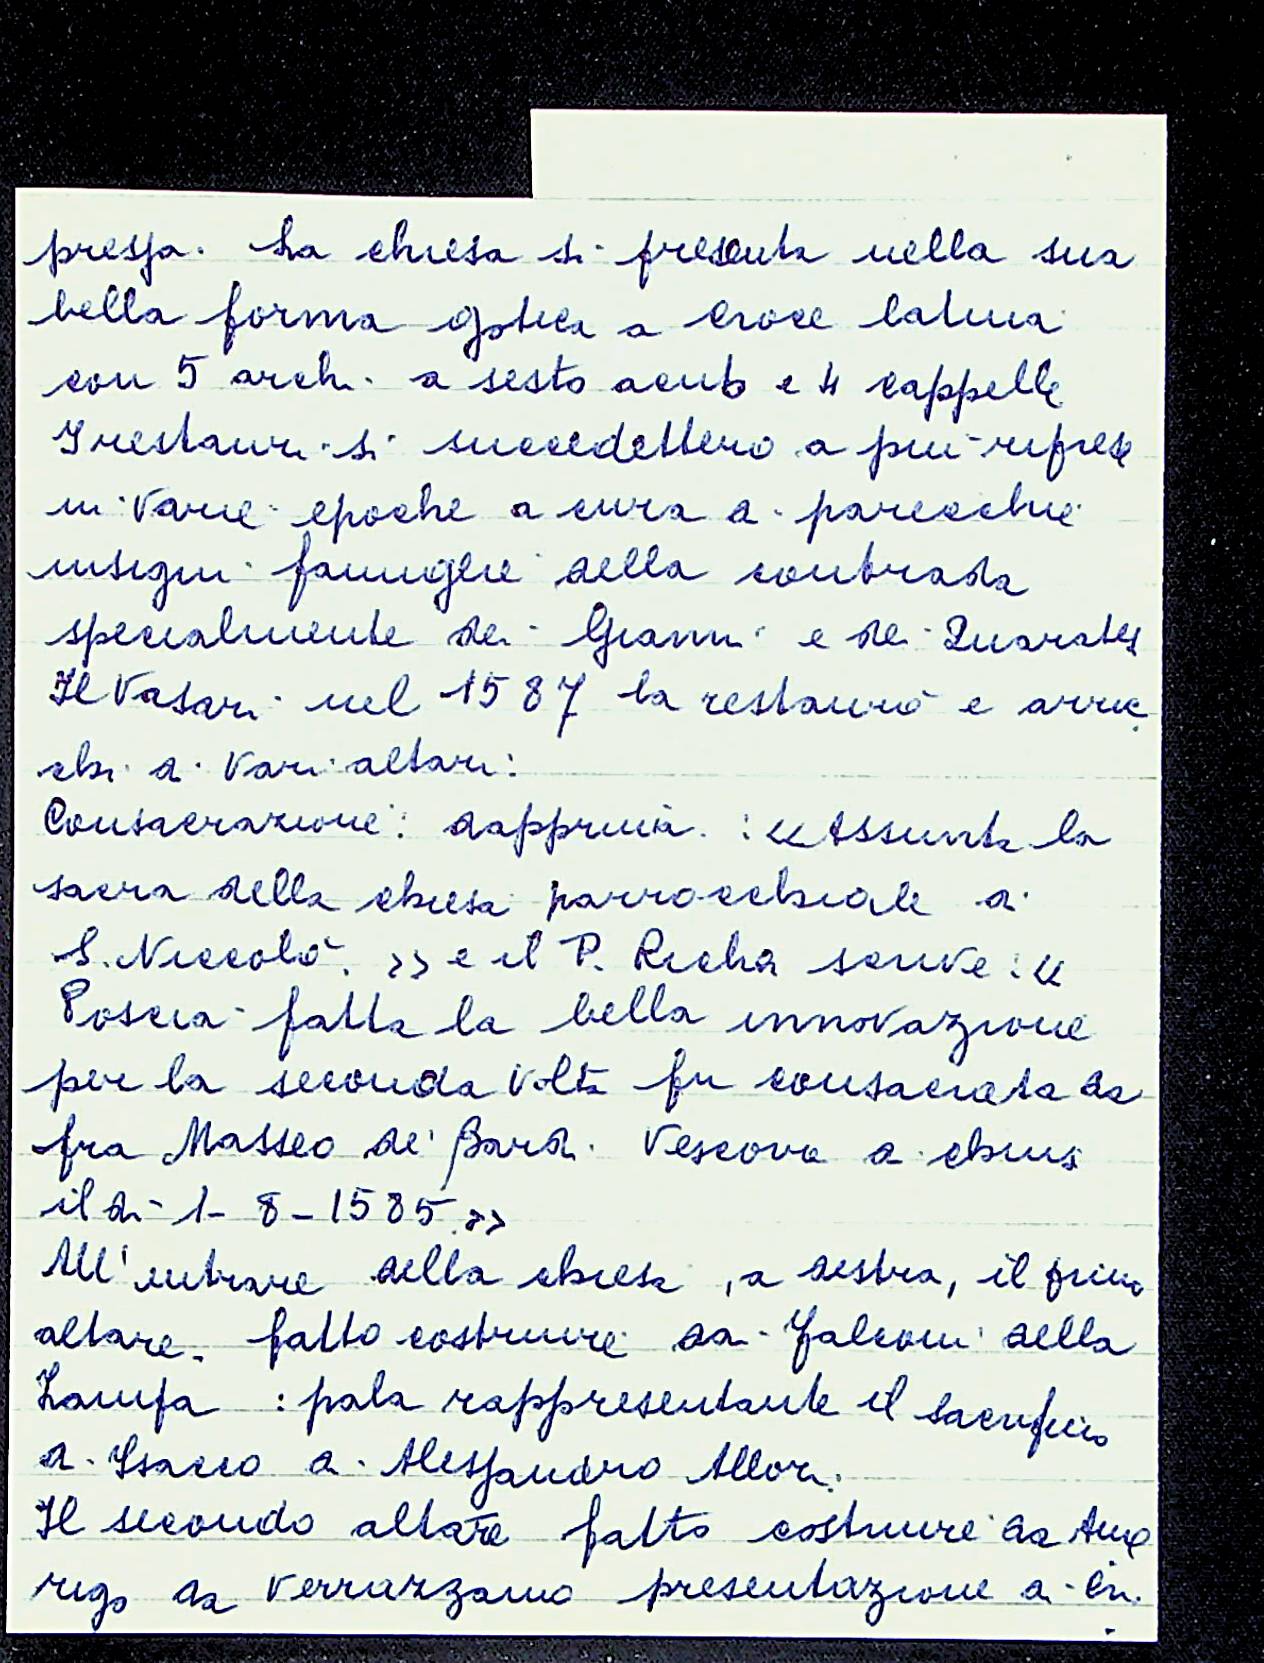 pressa. La chiesa si presenta nella sua
bella forma gotica a croce latina
con 5 archi a sesto acuto e 4 cappelle
I restauri si succedettero a più riprese
in varie epoche a cura di parecchie
insigni famiglie della contrada
specialmente dei Gianni e dei Quaratesi
Il Vasari nel 1587 la restaurò e arric
chì di vari altari:
Consacrazione: dapprima : « Assunta la
sacra della chiesa parrocchiale di
S. Niccolò. » e il P. Richa scrive : «
Poscia fatta la bella innovazione
per la seconda volta fu consacrata da
fra Masseo de' Bardi Vescovo di Chiusi
il dì 1-8-1585.»
All'entrare della chiesa, a destra, il primo
altare. fatto costruire da Falconi della
: pala rappresentante il sacrificio
di Isacco di Alessandro Allori.
Il secondo altare fatto costruire da Ame
rigo da Verrazzano presentazione di